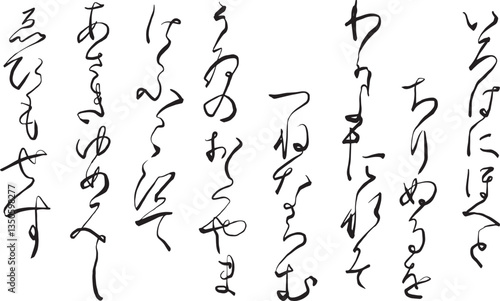 いろはにほへと
ちりぬるを
わかよたれそ
つねならむ
うゐのおくやま
けふこえて
あさきゆめみし
ゑひもせす
Adobe Stock